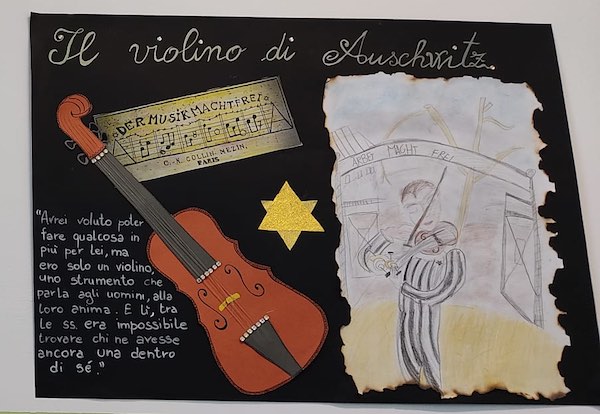 Il violino di Auschwitz.
DER MUSIK MACHT FREI
C.-H. COLLIN-MEZIN.
PARIS
ARBEI MACHT FREI
"Avrei voluto poter
fare qualcosa in
più per lei, ma
ero solo un violino,
uno strumento che
parla agli uomini, alla
loro anima. E lì, tra
le ss. era impossibile
trovare chi ne avesse
ancora una dentro
di sé."